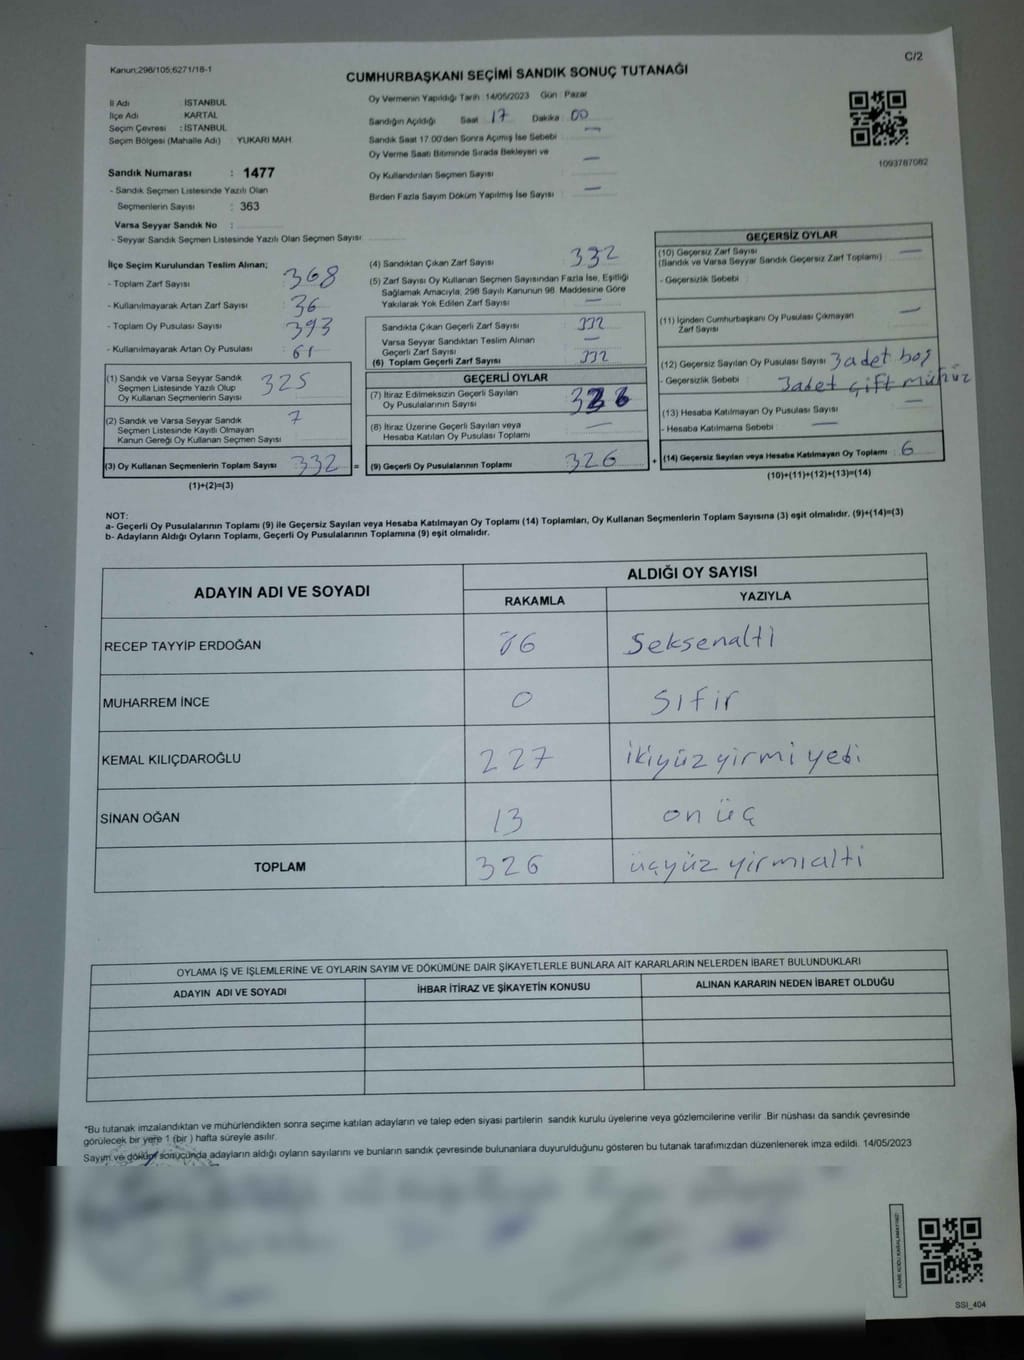 Kanun;298/105;6271/18-1
C/2
CUMHURBAŞKANI SEÇİMİ SANDIK SONUÇ TUTANAĞI
İl Adı İSTANBUL
İlçe Adı KARTAL
Seçim Çevresi : İSTANBUL
Seçim Bölgesi (Mahalle Adı) : YUKARI MAH
Sandık Numarası : 1477
- Sandık Seçmen Listesinde Yazılı Olan
Seçmenlerin Sayısı : 363
Varsa Seyyar Sandık No :
- Seyyar Sandık Seçmen Listesinde Yazılı Olan Seçmen Sayısı
Oy Vermenin Yapıldığı Tarih :14/05/2023 Gün : Pazar
Sandığın Açıldığı Saat 17 Dakika : 00
Sandık Saat 17:00'den Sonra Açımış İse Sebebi —
Oy Verme Saati Bitiminde Sırada Bekleyen ve
Oy Kullandırılan Seçmen Sayısı —
Birden Fazla Sayım Döküm Yapılmış İse Sayısı —
1093787082
İlçe Seçim Kurulundan Teslim Alınan;
- Toplam Zarf Sayısı : 368
- Kullanılmayarak Artan Zarf Sayısı : 36
- Toplam Oy Pusulası Sayısı : 393
- Kullanılmayarak Artan Oy Pusulası : 61
(1) Sandık ve Varsa Seyyar Sandık
Seçmen Listesinde Yazılı Olup
Oy Kullanan Seçmenlerin Sayısı 325
(2) Sandık ve Varsa Seyyar Sandık
Seçmen Listesinde Kayıtlı Olmayan
Kanun Gereği Oy Kullanan Seçmen Sayısı 7
(3) Oy Kullanan Seçmenlerin Toplam Sayısı 332 =
(1)+(2)=(3)
(4) Sandıktan Çıkan Zarf Sayısı : 332
(5) Zarf Sayısı Oy Kullanan Seçmen Sayısından Fazla İse, Eşitliği
Sağlamak Amacıyla, 298 Sayılı Kanunun 98. Maddesine Göre
Yakılarak Yok Edilen Zarf Sayısı —
Sandıkta Çıkan Geçerli Zarf Sayısı 332
Varsa Seyyar Sandıktan Teslim Alınan
Geçerli Zarf Sayısı —
(6) Toplam Geçerli Zarf Sayısı 332
GEÇERLİ OYLAR
(7) İtiraz Edilmeksizin Geçerli Sayılan
Oy Pusulalarının Sayısı 326
(8) İtiraz Üzerine Geçerli Sayılan veya
Hesaba Katılan Oy Pusulası Toplamı —
(9) Geçerli Oy Pusulalarının Toplamı 326 +
GEÇERSİZ OYLAR
(10) Geçersiz Zarf Sayısı
(Sandık ve Varsa Seyyar Sandık Geçersiz Zarf Toplamı) —
- Geçersizlik Sebebi :
(11) İçinden Cumhurbaşkanı Oy Pusulası Çıkmayan
Zarf Sayısı —
(12) Geçersiz Sayılan Oy Pusulası Sayısı 3 adet boş
- Geçersizlik Sebebi : 3 adet çift mühür
(13) Hesaba Katılmayan Oy Pusulası Sayısı —
- Hesaba Katılmama Sebebi : —
(14) Geçersiz Sayılan veya Hesaba Katılmayan Oy Toplamı : 6
(10)+(11)+(12)+(13)=(14)
NOT:
a- Geçerli Oy Pusulalarının Toplamı (9) ile Geçersiz Sayılan veya Hesaba Katılmayan Oy Toplamı (14) Toplamları, Oy Kullanan Seçmenlerin Toplam Sayısına (3) eşit olmalıdır. (9)+(14)=(3)
b- Adayların Aldığı Oyların Toplamı, Geçerli Oy Pusulalarının Toplamına (9) eşit olmalıdır.
ADAYIN ADI VE SOYADI
ALDIĞI OY SAYISI
RAKAMLA YAZIYLA
RECEP TAYYİP ERDOĞAN 86 Seksenalti
MUHARREM İNCE 0 Sıfır
KEMAL KILIÇDAROĞLU 227 ikiyüz yirmi yedi
SİNAN OĞAN 13 on üç
TOPLAM 326 üçyüz yirmialti
OYLAMA İŞ VE İŞLEMLERİNE VE OYLARIN SAYIM VE DÖKÜMÜNE DAİR ŞİKAYETLERLE BUNLARA AİT KARARLARIN NELERDEN İBARET BULUNDUKLARI
ADAYIN ADI VE SOYADI İHBAR İTİRAZ VE ŞİKAYETİN KONUSU ALINAN KARARIN NEDEN İBARET OLDUĞU
*Bu tutanak imzalandıktan ve mühürlendikten sonra seçime katılan adayların ve talep eden siyasi partilerin sandık kurulu üyelerine veya gözlemcilerine verilir .Bir nüshası da sandık çevresinde
görülecek bir yere 1 (bir ) hafta süreyle asılır.
Sayım ve döküm sonucunda adayların aldığı oyların sayılarını ve bunların sandık çevresinde bulunanlara duyurulduğunu gösteren bu tutanak tarafımızdan düzenlenerek imza edildi. 14/05/2023
KARE KODU KARALAMAYINIZ!
SSI_404